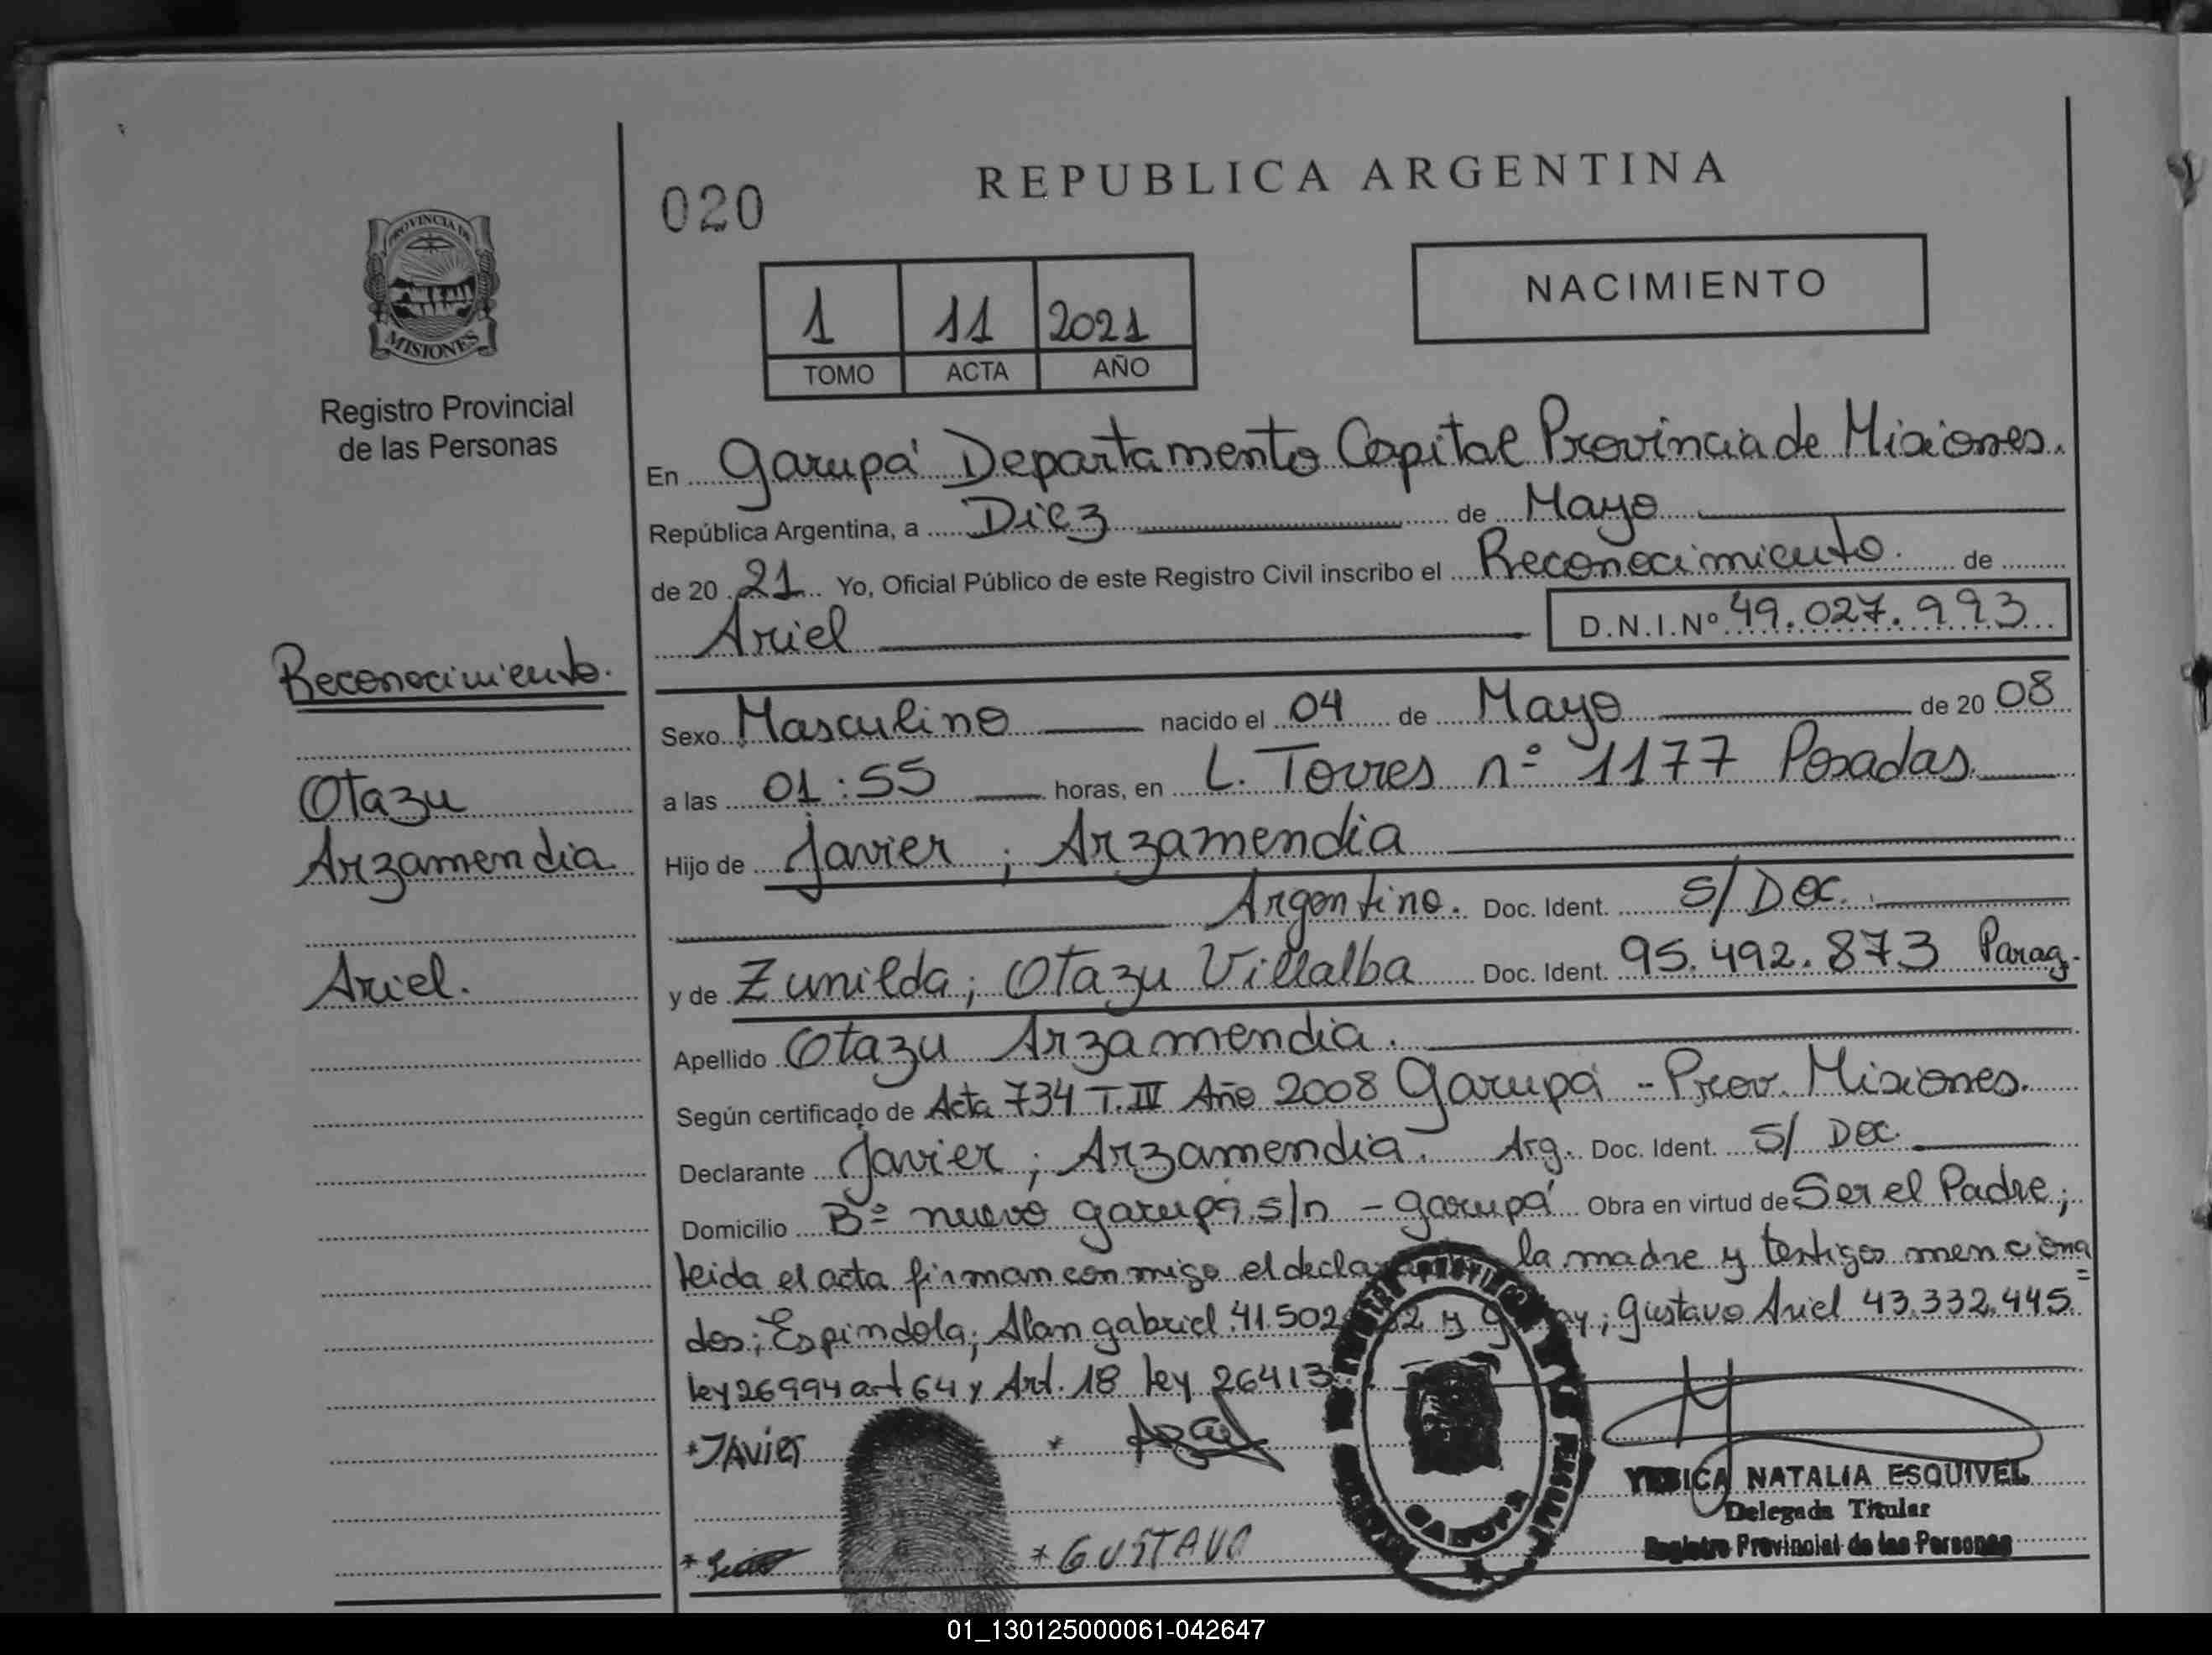 REPUBLICA ARGENTINA
020
PROVINCIA DE
MISIONES
Registro Provincial
de las Personas
1 11 2021
TOMO ACTA AÑO
NACIMIENTO
En Garupá Departamento Capital Provincia de Misiones.
República Argentina, a Diez de Mayo
de 20 21 Yo, Oficial Público de este Registro Civil inscribo el Reconocimiento. de
Ariel D.N.I.Nº 49.027.993
Reconocimiento.
Otazu
Arzamendia
Ariel.
Sexo Masculino nacido el 04 de Mayo de 20 08
a las 01:55 horas, en L. Torres nº 1177 Posadas.
Hijo de Javier ; Arzamendia
Argentino. Doc. Ident. S/ Doc.
y de Zunilda; Otazu Villalba Doc. Ident. 95.492.873 Parag.
Apellido Otazu Arzamendia.
Según certificado de Acta 734 T.IV Año 2008 Garupá - Prov. Misiones.
Declarante Javier ; Arzamendia. Arg. Doc. Ident. S/ Doc.
Domicilio Bº nuevo garupá s/n - garupá Obra en virtud de Ser el Padre;
leida el acta firman con migo el la madre y testigos menciona
dos; Espindola; Alan gabriel 41.502 y ; Gustavo Ariel 43.332.445.
ley 26994 art 64 y Art. 18 ley 26413.
* JAVIER *
* * GUSTAVO
GARUPA
YESICA NATALIA ESQUIVEL
Delegada Titular
Registro Provincial de las Personas
01_130125000061-042647